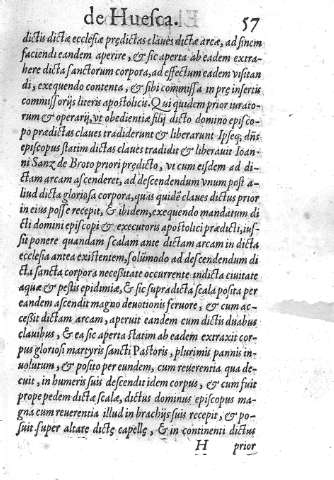 de Huesca. 57
dictis dictæ ecclesiæ prędictas claues dictæ arcæ, ad finem
faciendi eandem aperire, & sic aperta ab eadem extra-
here dicta sanctorum corpora, ad effectum eadem visitan
di, exequendo contenta, & sibi commissa in pre insertis
commissorijs literis apostolicis. Qui quidem prior iurato-
rum & operarij, vt obedientiæ filij dicto domino episco
po prædictas claues tradiderunt & liberarunt Ipseq; dñs
episcopus statim dictas claues tradidit & liberauit Ioan
ni Sanz de Broto priori prędicto, vt cum eisdem ad di-
ctam arcam ascenderet, ad descendendum vnum post a-
liud dicta gloriosa corpora, quas quidē claues dictus prior
in eius posse recepit, & ibidem, exequendo mandatum di
cti domini episcopi & executoris apostolici prædicti, ius-
sit ponere quandam scalam ante dictam arcam in dicta
ecclesia antea existentem, solūmodo ad descendendum di
cta sancta corpora necessitate occurrente in dicta ciuitate
aquæ & pestis epidimiæ, & sic supradicta scala posita per
eandem ascendit magno deuotionis feruore, & cum ac-
cessit dictam arcam, aperuit eandem cum dictis duabus
clauibus, & ea sic aperta statim ab eadem extraxit cor-
pus gloriosi martyris sancti Pastoris, plurimis pannis in-
uolutum, & posito per eundem, cum reuerentia qua de-
cuit, in humeris suis descendit idem corpus, & cum fuit
prope pedem dictæ scalæ, dictus dominus episcopus ma-
gna cum reuerentia illud in brachijs suis recepit, & po-
suit super altare dictę capellę, & in continenti dictus
H prior